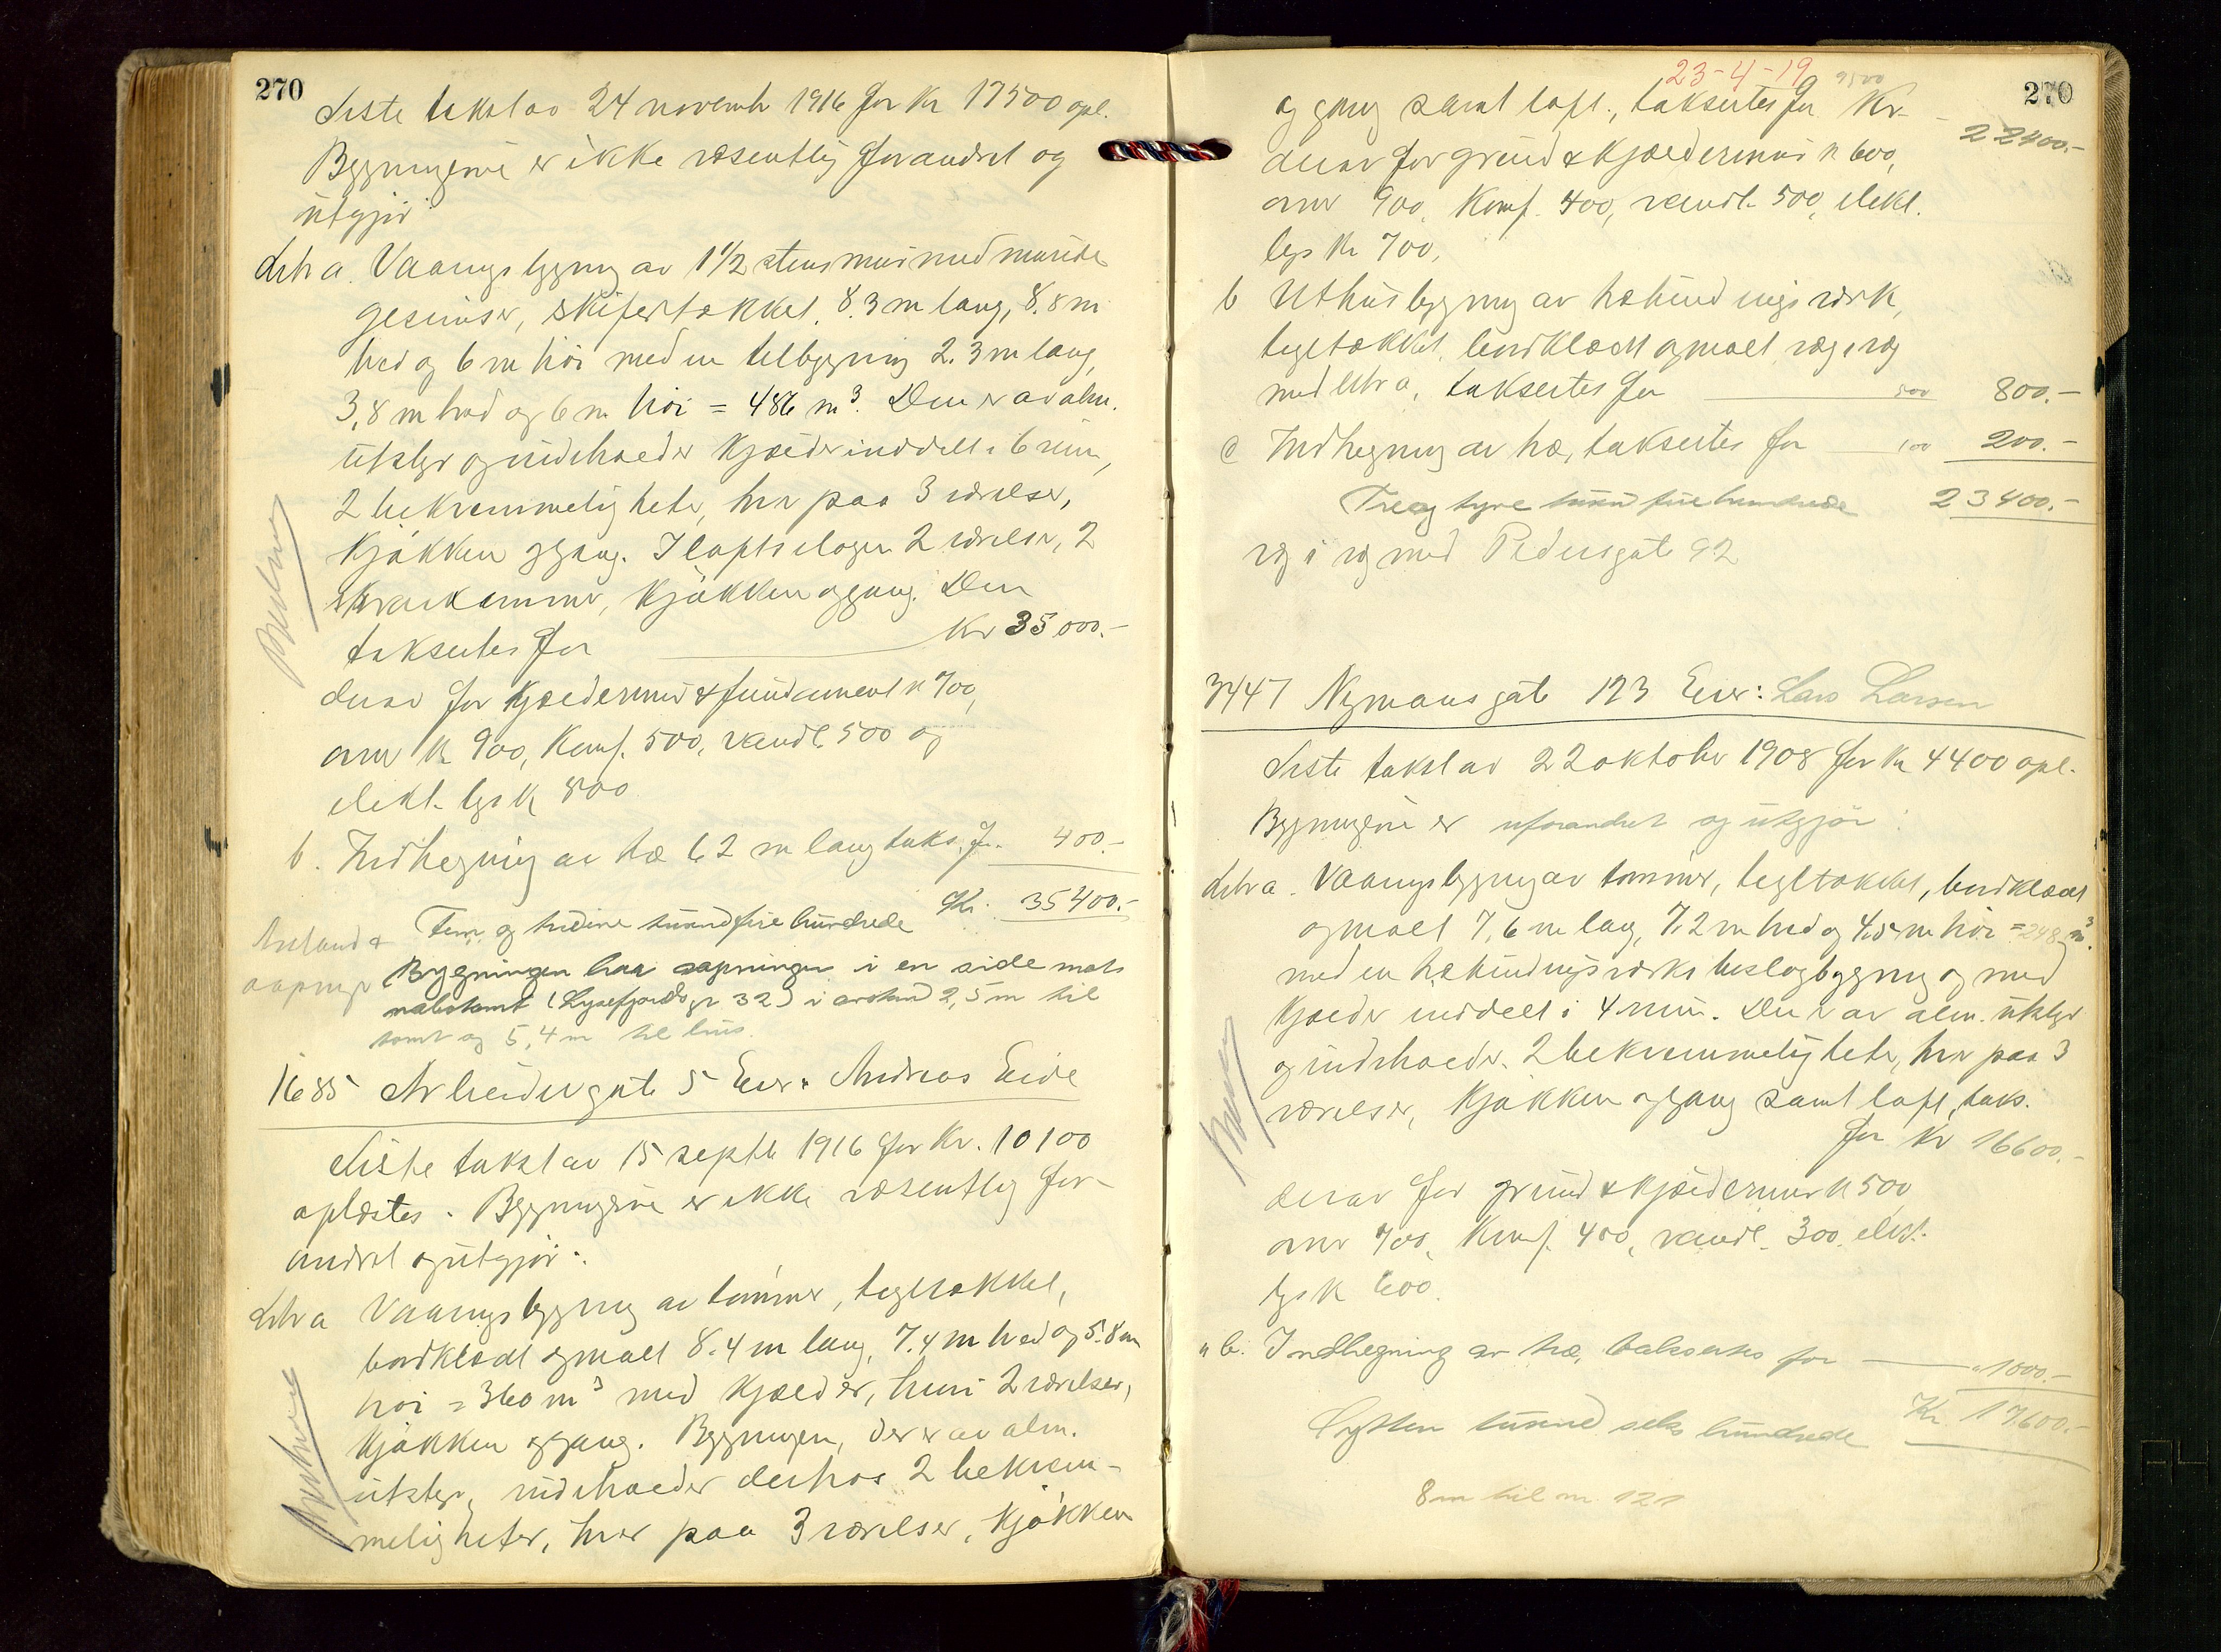 270
Siste takst av 24 novembr 1916 for kr 17500 opl.
Bygningerne er ikke væsentlig forandret og
utgjør
Litr a. Vaaningsbygning av 1 1/2 stens mur med murede
gesimser, skifertækket, 8.3 m lang, 8.8 m
bred og 6 m høi med en tilbygning 2.3 m lang,
3,8 m bred og 6 m høi = 486 m³. Den er av alm.
utstyr og indeholder kjælder inddelt i 6 rum,
2 bekvemmeligheter, hver paa 3 værelser,
kjøkken og gang. I loftsetagen 2 værelser, 2
kvarkammer, kjøkken og gang. Den
taksertes for Kr 35 000.-
derav for kjældermur & fundament k 700,
ovner k 900, Komf. 500, vandl. 500 og
elekt. lys k 800
b. Indhegning av træ 62 m lang taks. for 400.-
Kr. 35 400.-
Fem og tredive tusind fire hundrede
Avstand &
aapninger
Bygningen har aapninger i en side mot
nabotomt (Lysefjordsgt 32) i avstand 2,5 m til
tomt og 5,4 m til hus.
1685 Arbeidergate 5 Eier: Andreas Eide
Siste takst av 15 septbr 1916 for Kr. 10100
oplæstes. Bygningerne er ikke væsentlig for-
andret og utgjør:
Litr a Vaaningsbygning av tømmer, tegltækket,
bordklædt og malt 8.4 m lang, 7.4 m bred og 5.8 m
høi = 360 m³ med kjælder, hvori 2 værelser,
kjøkken og gang. Bygningen, der er av alm.
utstyr, indeholder derhos 2 bekvem-
meligheter, hver paa 3 værelser, kjøkken
23-4-19
9500
270
og gang samt loft, taksertes for Kr. 22400.-
derav for grund & kjældermur k 600,
ovner 900, Komf. 400, vandl. 500, elekt.
lys kr 700,
b Uthusbygning av træbindingsværk,
tegltækket, bordklædt og malt væg i væg
med litr a, taksertes for 500 800.-
c Indhegning av træ, taksertes for 100 200.-
Tre og tyve tusind fire hundrede 23400.-
væg i væg med Pedersgate 92
3447 Nymansgate 123 Eier: Lars Larsen
Siste takst av 22 oktober 1908 for kr 4400 opl.
Bygningerne er uforandret og utgjør:
Litr a. Vaaningsbygning av tømmer, tegltækket, bordklædt
og malt 7,6 m lang, 7,2 m bred og 4,5 m høi = 248 m³.
med en træbindingsverks beslagbygning og med
kjælder inddelt i 4 rum. Den er av alm. utstyr
og indeholder 2 bekvemmeligheter, hver paa 3
værelser, kjøkken og gang samt loft, taks.
for kr 16600.-
derav for grund & kjældermur k 500
ovner 700, Komf. 400, vandl. 300, elekt.
lys k 600.
" b. Indhegning av træ, taksertes for " 1000.-
Sytten tusind seks hundrede Kr. 17600.-
8 m til nr. 121